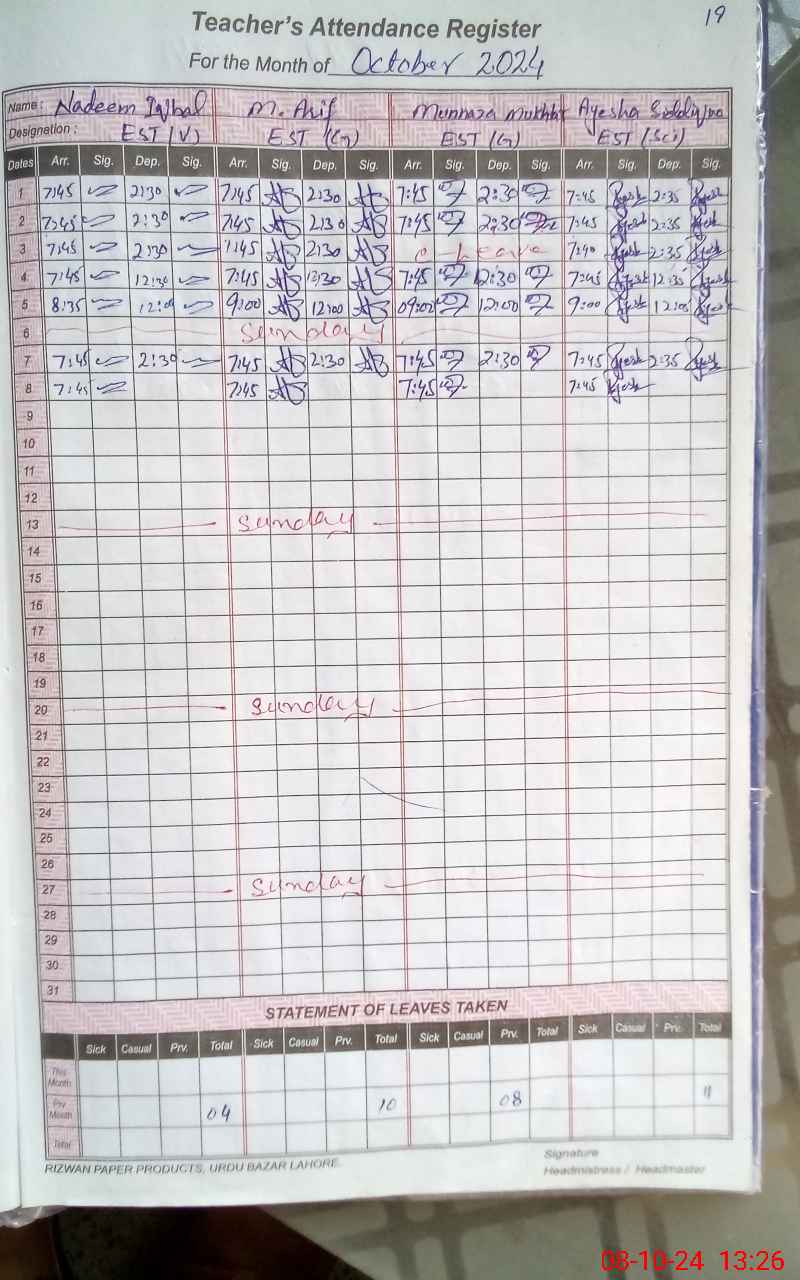 19
Teacher's Attendance Register
For the Month of October 2024
Name: Nadeem Iqbal M. Arif Munnaza Mukhtar Ayesha
Designation: EST (V) EST EST (G) EST (Sci)
Dates Arr. Sig. Dep. Sig. Arr. Sig. Dep. Sig. Arr. Sig. Dep. Sig. Arr. Sig. Dep. Sig.
1 7:45 2:30 7:45 2:30 7:45 2:30 7:45 2:35
2 7:45 2:30 7:45 2:30 7:45 2:30 7:45 2:35
3 7:45 2:30 7:45 2:30 c-Leave 7:40 2:35
4 7:45 12:30 7:45 12:30 7:45 12:30 7:45 12:35
5 8:35 12:00 9:00 12:00 09:00 12:00 9:00 12:05
6 Sunday
7 7:45 2:30 7:45 2:30 7:45 2:30 7:45 2:35
8 7:45 7:45 7:45 7:45
9
10
11
12
13 Sunday
14
15
16
17
18
19
20 Sunday
21
22
23
24
25
26
27 Sunday
28
29
30
31
STATEMENT OF LEAVES TAKEN
Sick Casual Prv. Total Sick Casual Prv. Total Sick Casual Prv. Total Sick Casual Prv. Total
This Month
Prv Month 04 10 08 11
Total
RIZWAN PAPER PRODUCTS, URDU BAZAR LAHORE.
Signature
Headmistress / Headmaster
08-10-24 13:26